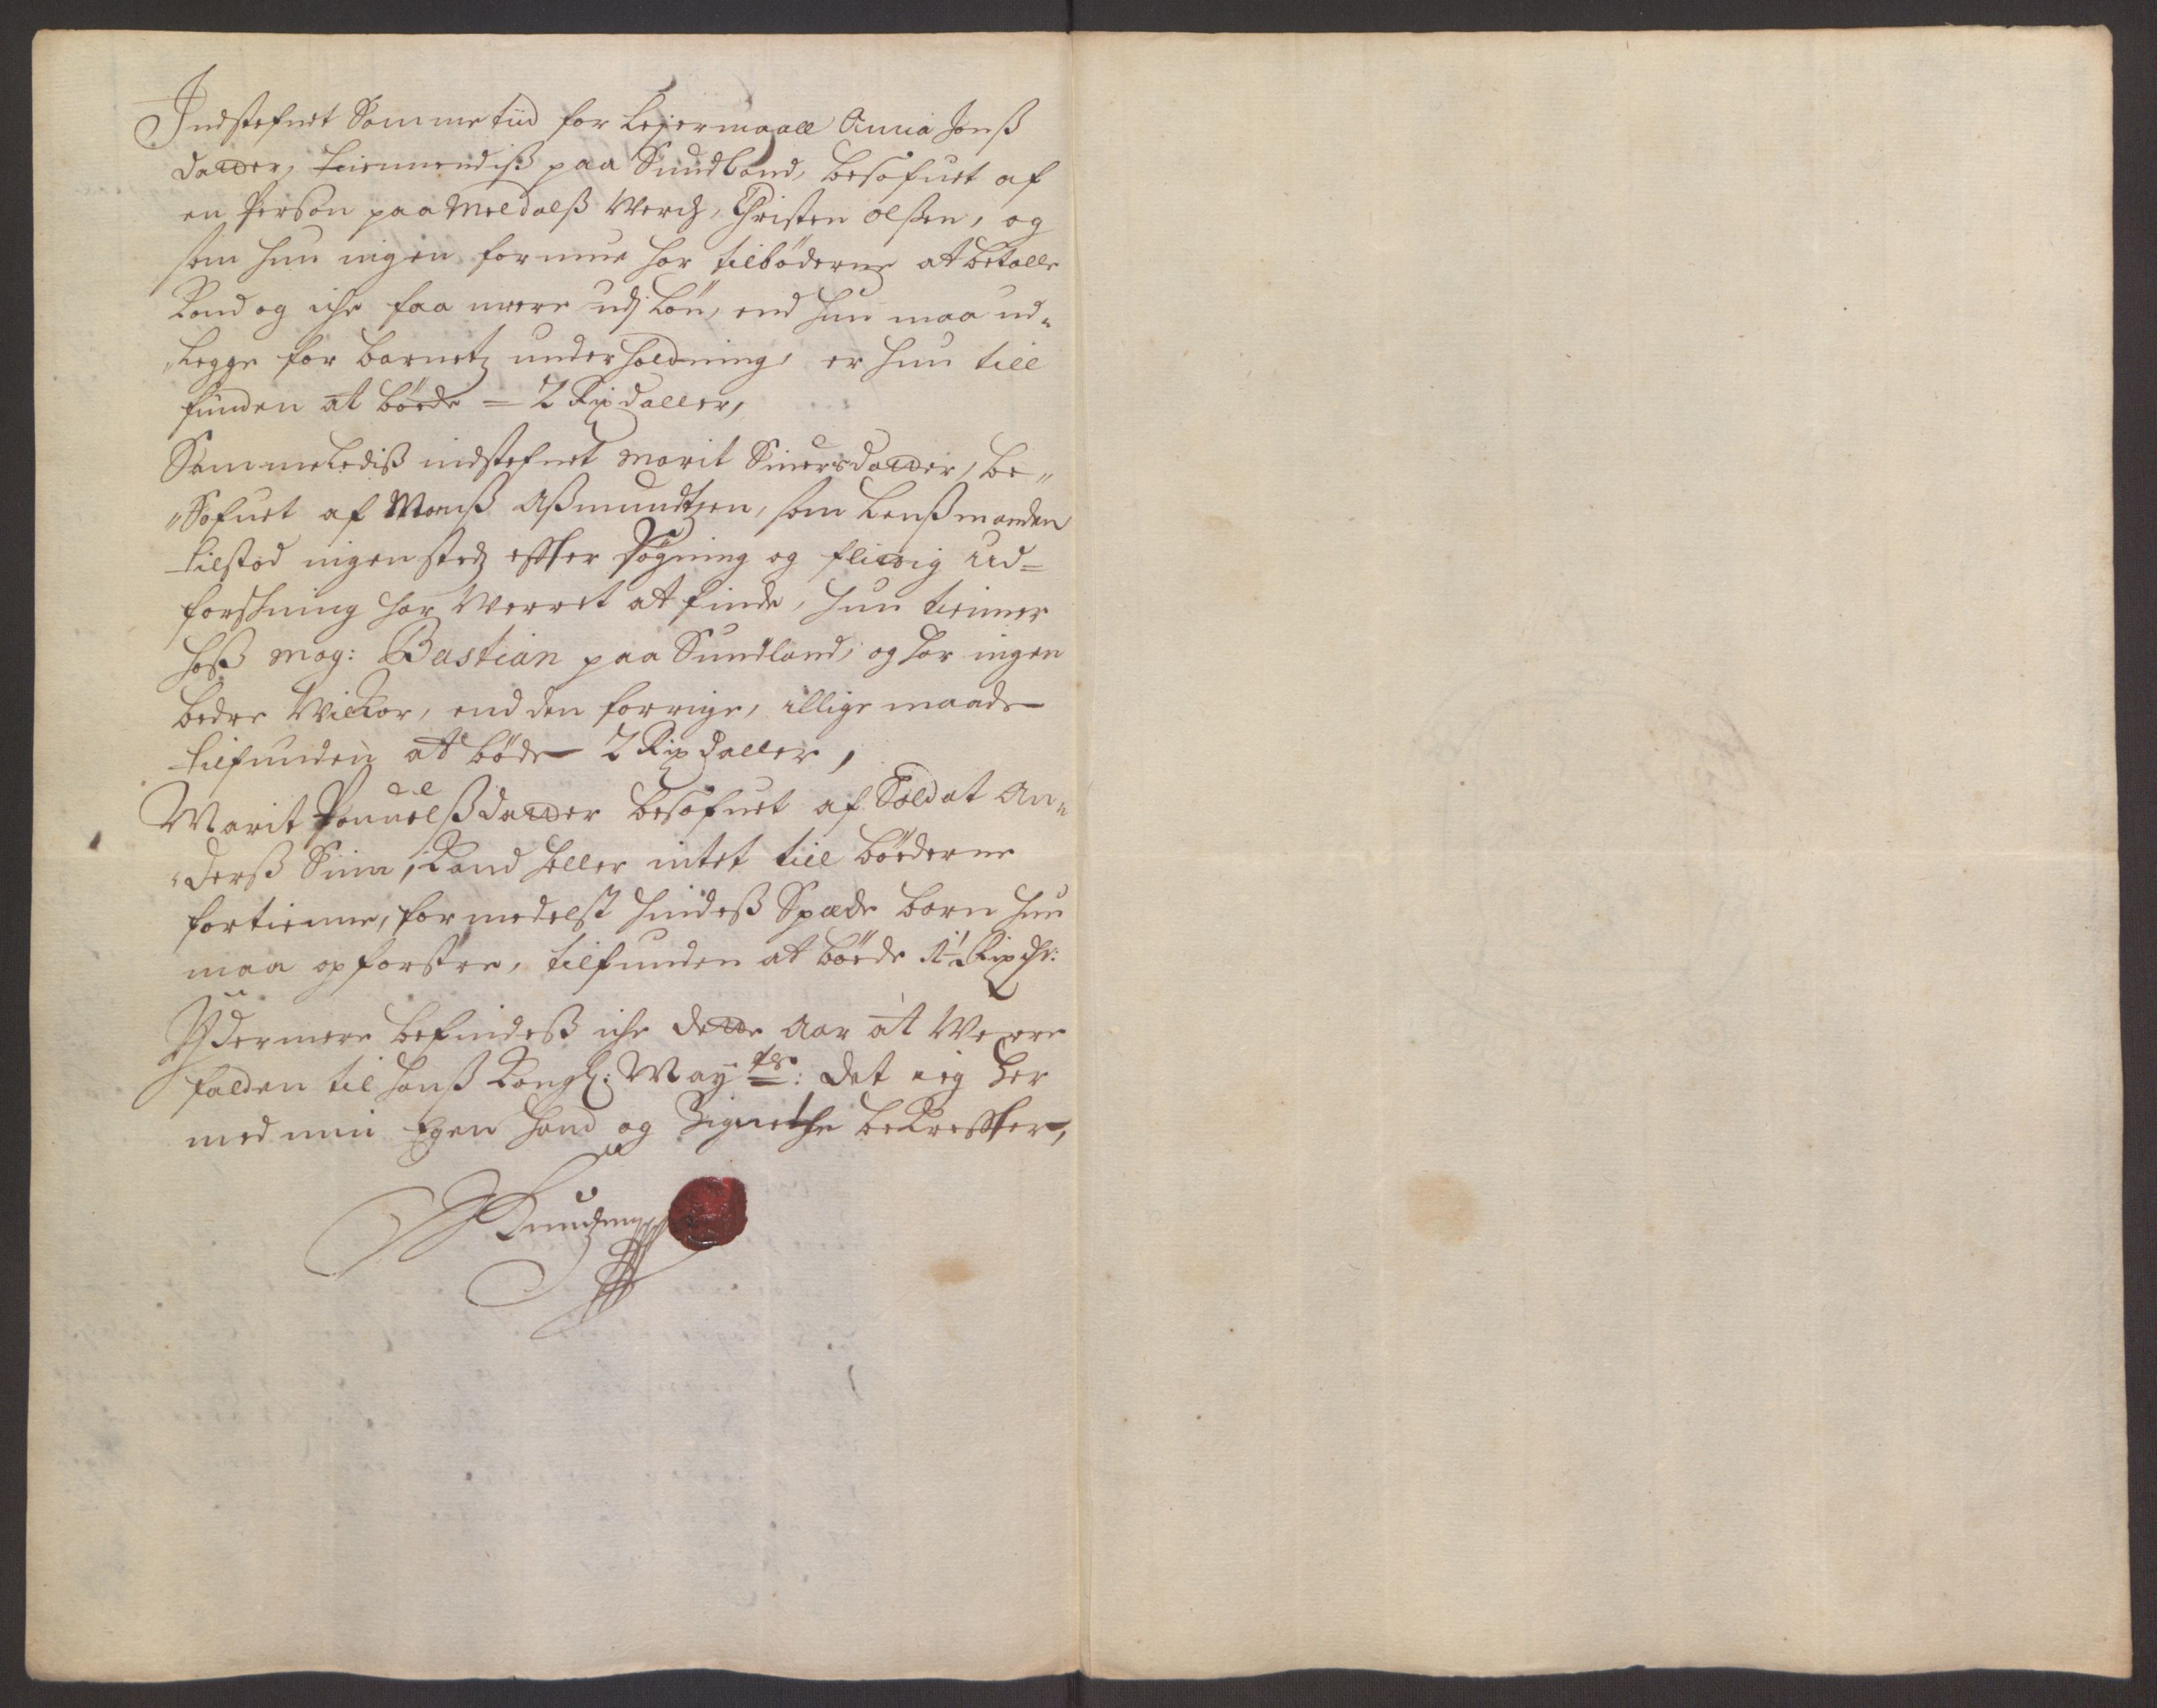 Indstefnet Samme tiid for Leyermaall Anna Jonß
datter, tiennendiß paa Sundland, besofuet af
en Person paa Meldalß Werch, Christen olßen, og
som hun ingen formue har til böderne at betalle
Kand og iche faa meere udj Lön, end hun maa ud„
„legge for barnetz underholdning, er hun till
funden at böede = 2 Rixdaller,
Sammeledis indstefnet Marit Siuersdatter, be„
„Sofuet af Monß Aßmundtzen, som Lenßmanden
tilstod ingen stedz effter Søgning og flittig Ud=
forschning har Werret at finde, hun tienner
hoß Mag: Bastian paa Sundland, og har ingen
bedre Wilkor, end den forrige, illige maade
tilfunden at böde 2 Rixdaller,
Marit Pouuelßdatter besofuet af Soldat An„
„derß Siuu, Kand heller intet till böederne
fortienne, formedelst hindeß Spæde barn hun
maa opfostre, tilfunden at böede 1½ Rixdr:
Ydermere befindeß iche dette Aar at Weere
falden til hanß Kongl: May^ts: det ieg her
med min Egen hand og Zignethe bekreffter,
Knudzen